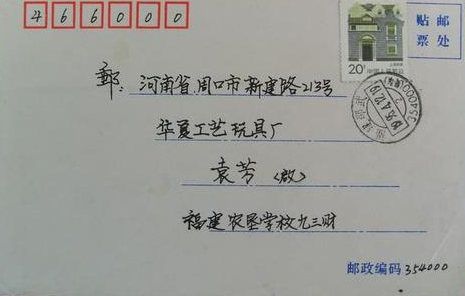 466000
贴邮
票处
20分
中国人民邮政
邮:河南省周口市新建路213号
华夏工艺玩具厂
袁芳(啟)
福建农垦学校九三财
邮政编码 354000